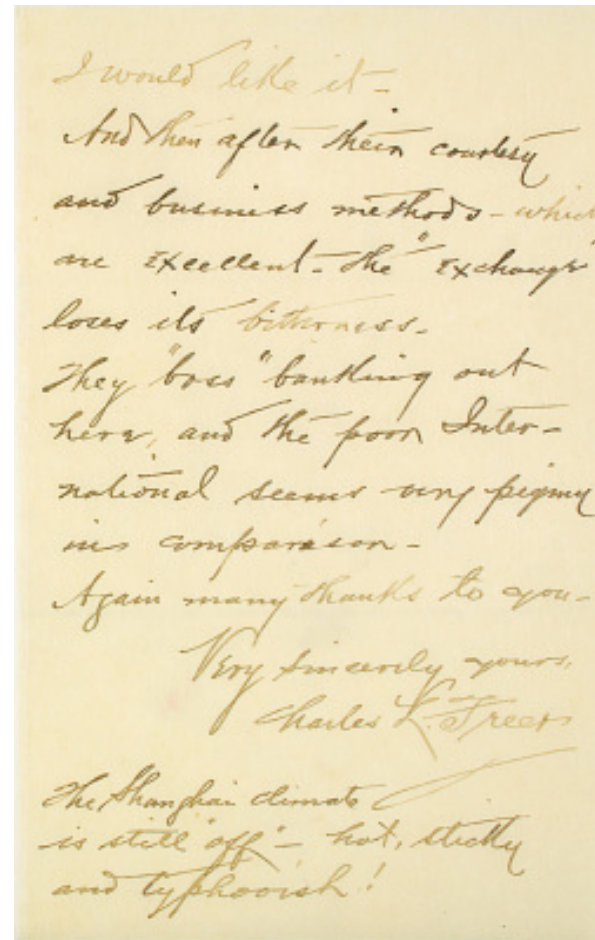 I would like it –
And then after their courtesy
and business methods – which
are excellent – the "exchange"
loses its bitterness –
They "boss" banking out
here, and the poor Inter-
national seems very pigmy
in comparison –
Again many thanks to you –
Very sincerely yours,
Charles L. Freer
The Shanghai climate
is still "off" – hot, sticky
and typhoonish!